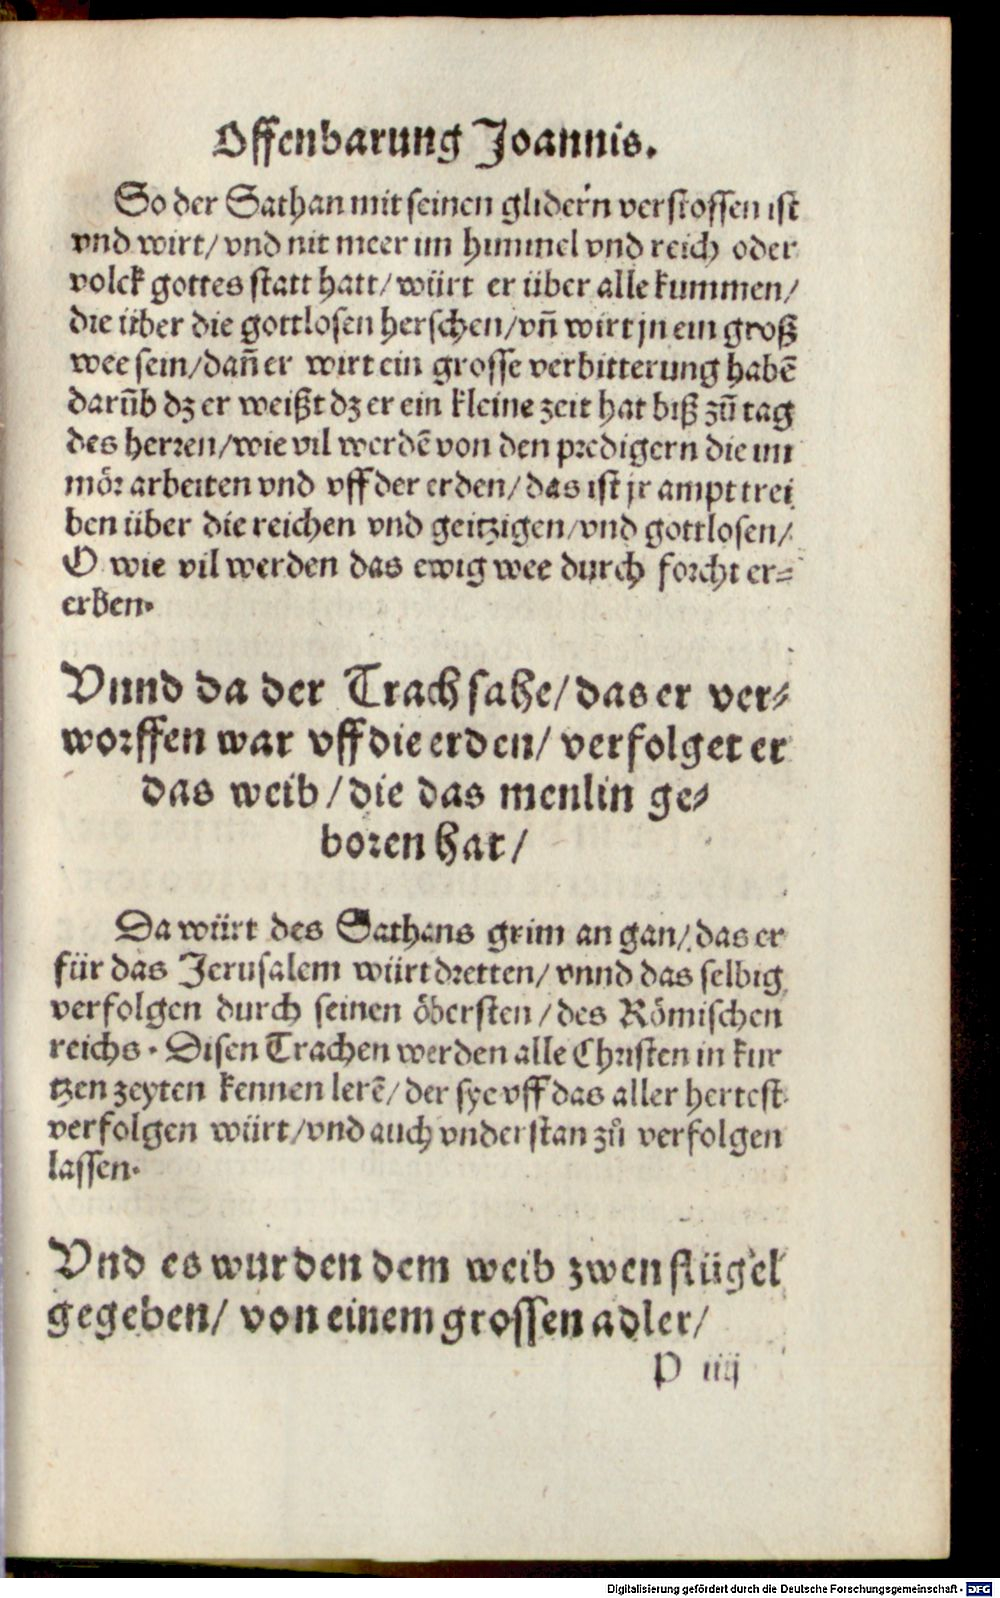 Offenbarung Joannis.
So der Sathan mit seinen glidern verstossen ist
vnd wirt/ vnd nit meer im himmel vnd reich oder
volck gottes statt hatt/ würt er über alle kummen/
die über die gottlosen herschen/ vñ wirt jn ein groß
wee sein/ dañ er wirt ein grosse verbitterung habẽ
darũb dz er weißt dz er ein kleine zeit hat biß zũ tag
des herren/ wie vil werdẽ von den predigern die im
mör arbeiten vnd vff der erden/ das ist jr ampt trei
ben über die reichen vnd geitzigen/ vnd gottlosen/
O wie vil werden das ewig wee durch forcht er-
erben.
Vnnd da der Trach sahe/ das er ver-
worffen war vff die erden/ verfolget er
das weib/ die das menlin ge-
boren hat/
Da würt des Sathans grim an gan/ das er
für das Jerusalem würt dretten/ vnnd das selbig
verfolgen durch seinen öbersten/ des Römischen
reichs. Disen Trachen werden alle Christen in kur
tzen zeyten kennen lerẽ/ der sye vff das aller hertest
verfolgen würt/ vnd auch vnderstan zů verfolgen
lassen.
Vnd es wurden dem weib zwen flügel
gegeben/ von einem grossen adler/
P iiij
Digitalisierung gefördert durch die Deutsche Forschungsgemeinschaft - DFG